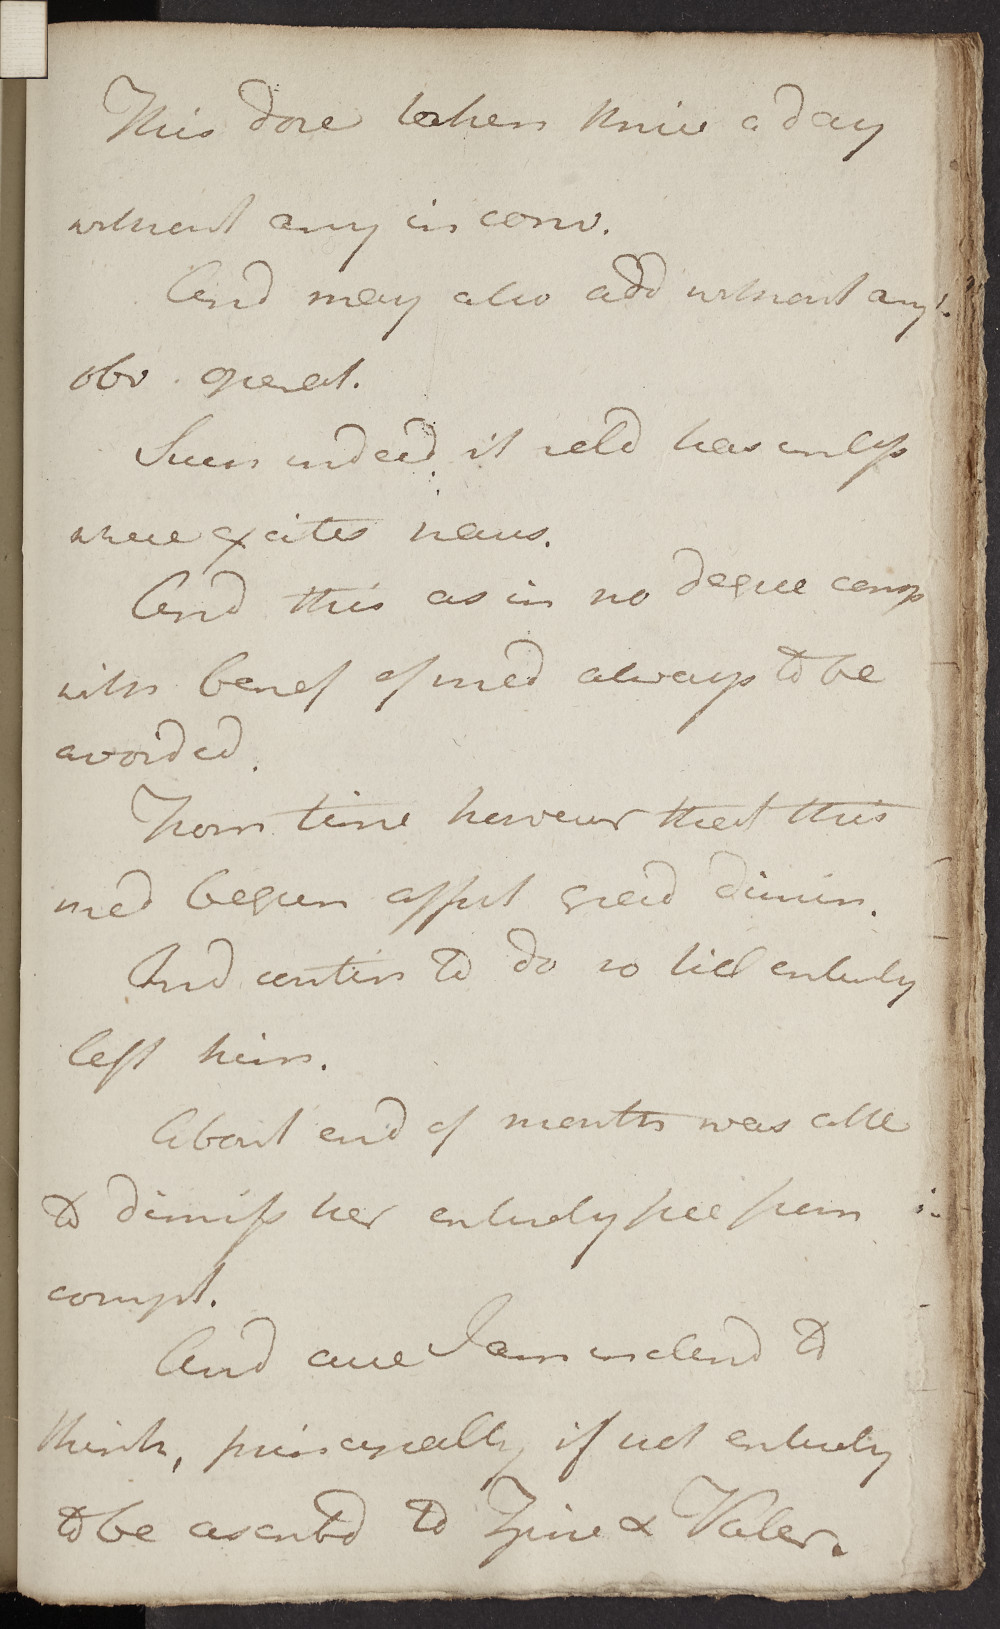 This dose taken thrice a day
without any in conv.
And may also add without any
obv. operat.
Seen indeed it seld has unless
where excites naus.
And this as in no degree comp
with benef of med always to be
avoided.
From time however that this
med begun affect grad dimin.
And contin to do so till entirely
left him.
About end of month was able
to dimiss her entirely free from
compt.
And cure I am inclend to
think, principally if not entirely
to be ascribd to Zinc & Valer.